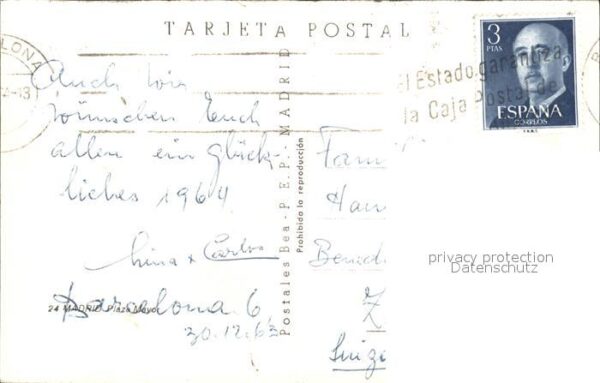 TARJETA POSTAL
3
PTAS
ESPAÑA
CORREOS
F.N.M.T.
LONA
El Estado garantiza
la Caja Postal de
Auch wir
wünschen Euch
allen ein glück-
liches 1964
+ Carlos
Barcelona 6,
30.12.63
24 MADRID. Plaza Mayor
Postales Bea.-P.E.P.-MADRID
Prohibida la reproducción
Fam
Han
Bened
Z
Suiz
privacy protection
Datenschutz